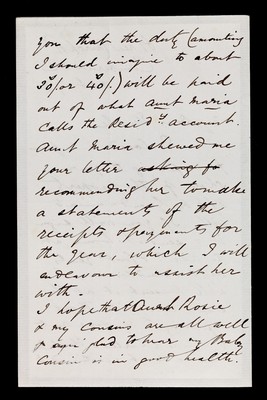 you that the duty (amounting
I should imagine to about
30/. or 40/.) will be paid
out of what aunt Maria
calls the Resid.y account.
Aunt Maria shewed me
your letter asking fo
recommending her to make
a statement of the
receipts & payments for
the year, which I will
endeavour to assist her
with.
I hope that Aunt Rosie
& my Cousins are all well
& am glad to hear my Baby
Cousin is in good health.